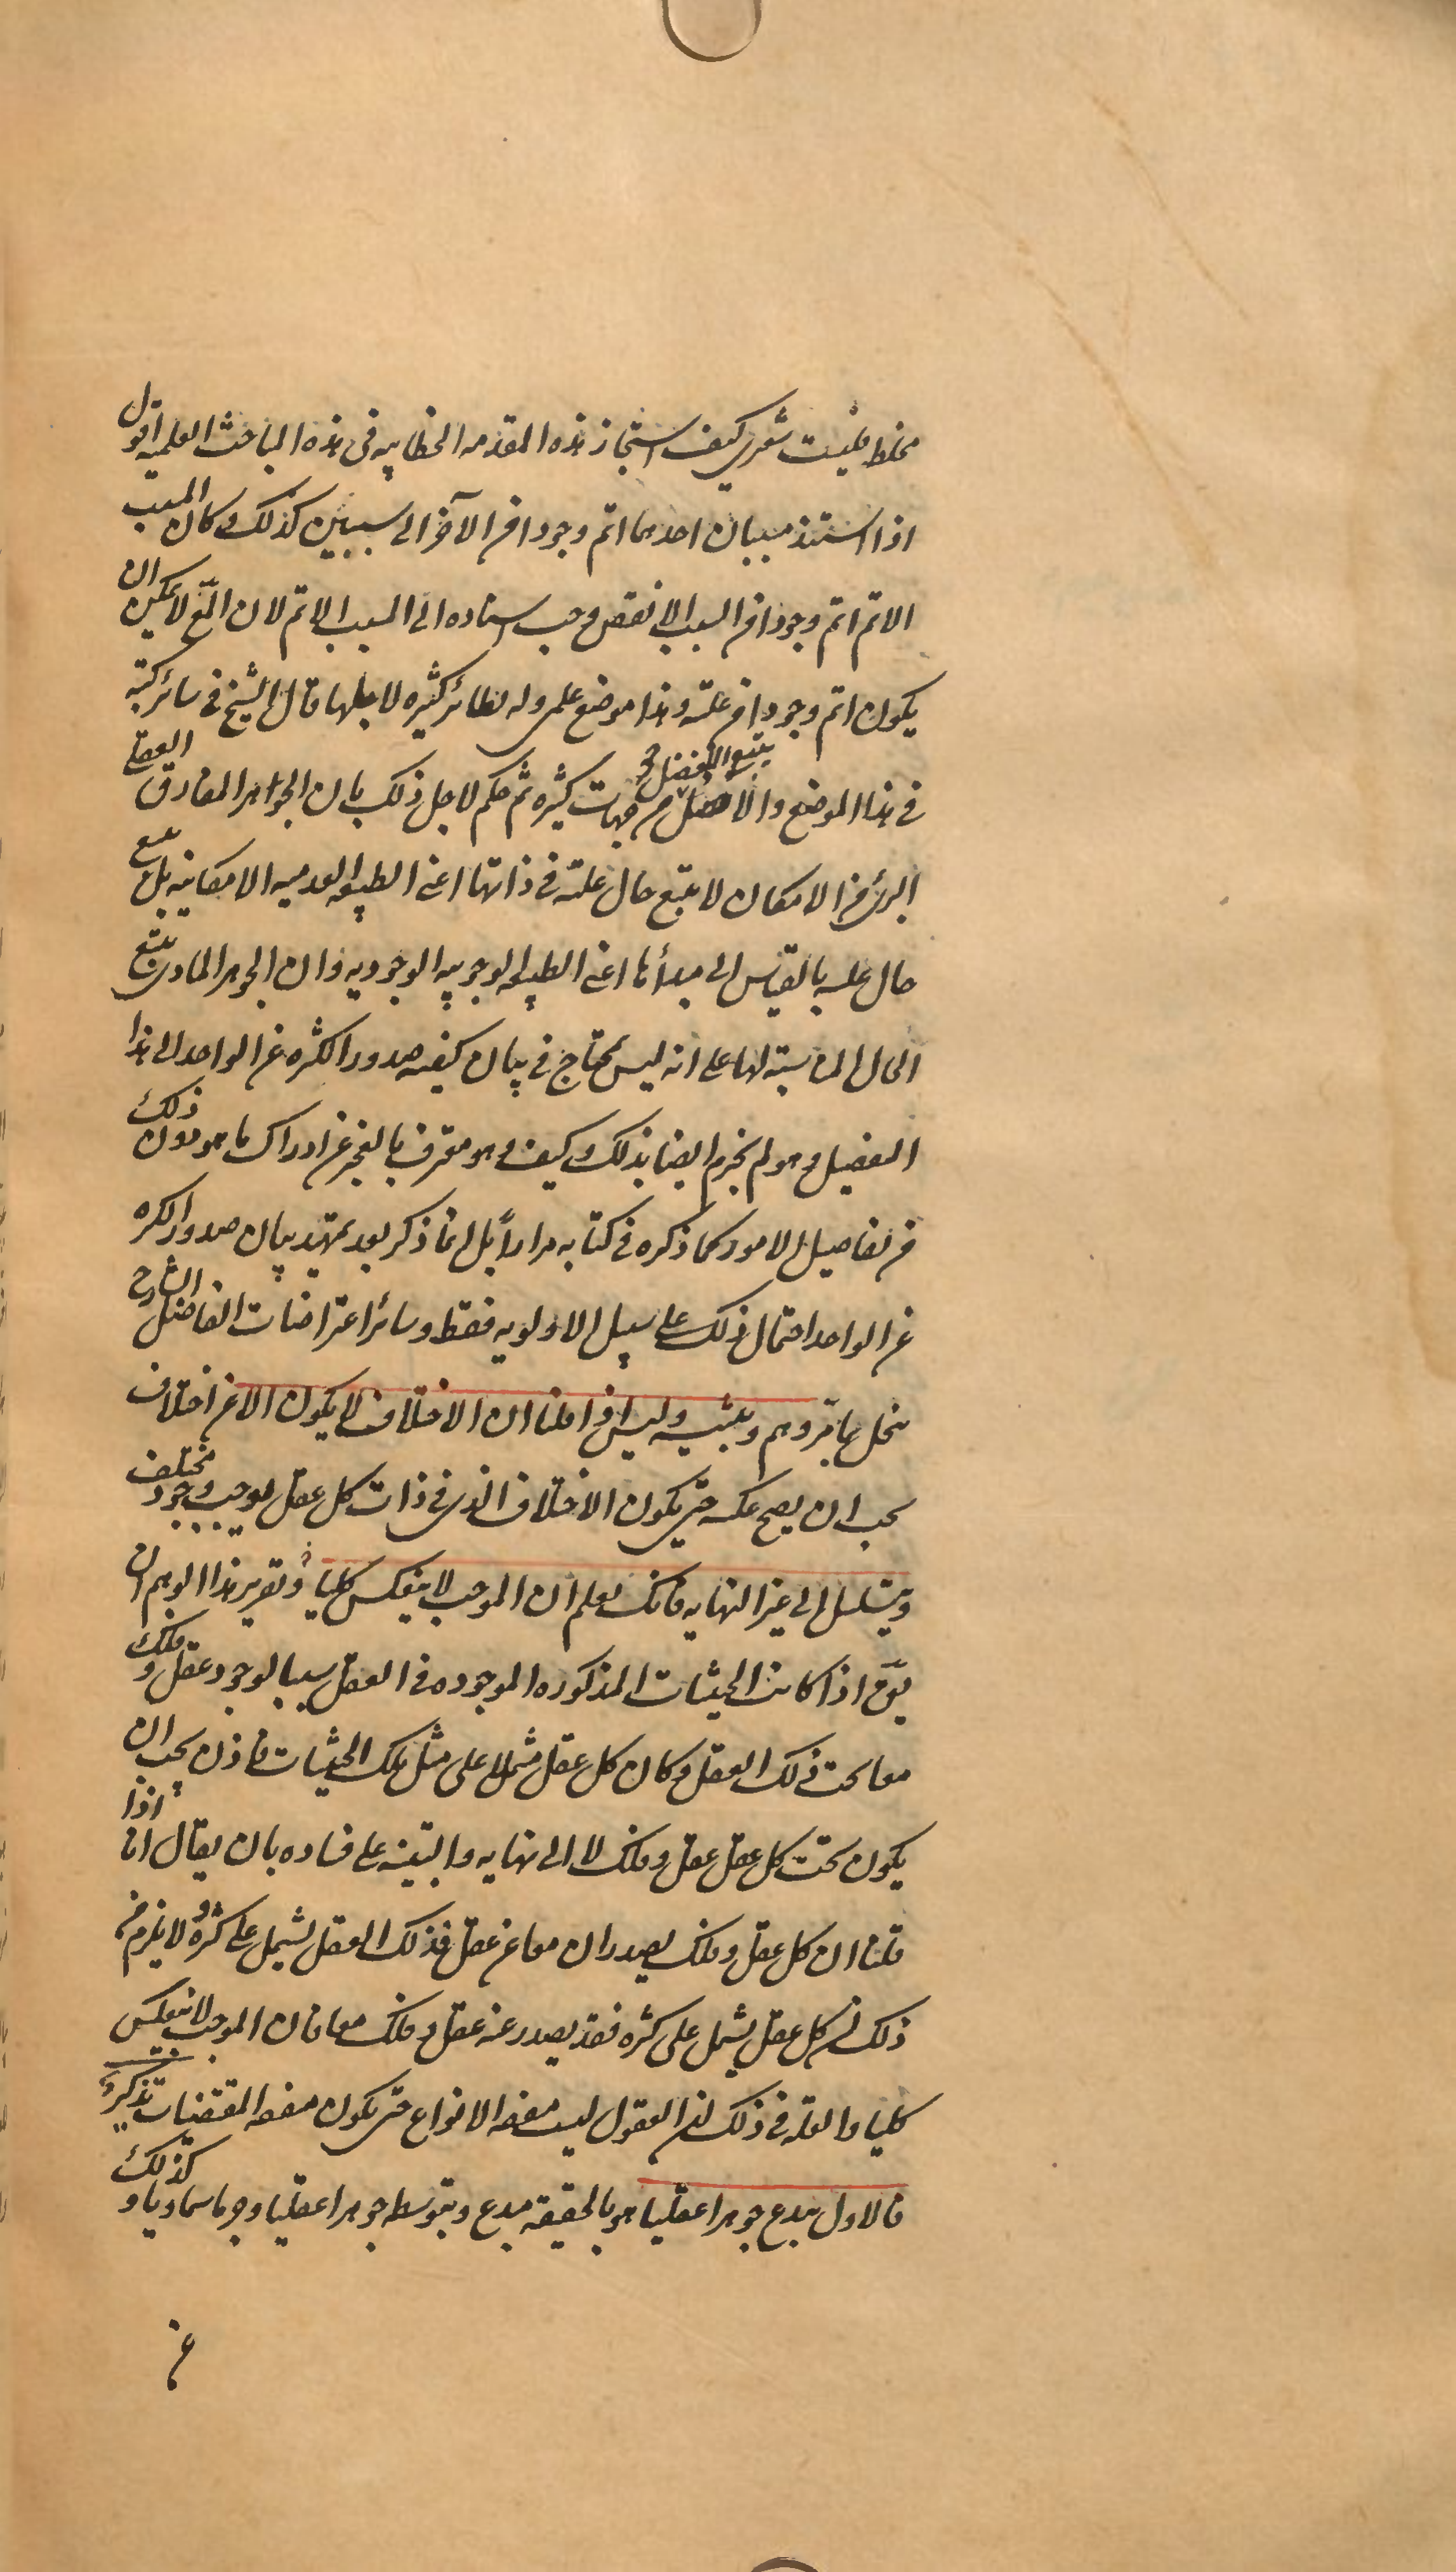 مخلط فليت شعري كيف استجاز هذه المقدمه الخطابيه فى هذه المباحث العلميه اقول
اذا استند مسببان احدهما اتم وجودا من الآخر الى سببين كذلك و كان المسبب
الاتم اتم وجودا من السبب الانقص وجب اسناده الى السبب الاتم لان المع لا يمكن ان
يكون اتم وجودا من علته وهذا موضع علمى وله نظائر كثيره لاجلها قال الشيخ فى سائر كتبه
فى هذا الموضع والافضل يتبع الافضل من جهات كثيره ثم حكم لاجل ذلك بان الجواهر المفارق العقلى
البرئ من الامكان لا يتبع حال علته فى ذاتها اعنى الطبيعه العدميه الامكانيه بل يتبع
حال علته بالقياس الى مبدأها اعنى الطبيعه الوجوبيه الوجوديه وان الجوهر المادى يتبع
الحال المناسبته لها على انه ليس بمحتاج فى بيان كيفيه صدور الكثره عن الواحد الى هذا
التفصيل و هو لم يجزم ايضا بذلك و كيف و هو معترف بالعجز عن ادراك ما هو دون ذلك
من تفاصيل الامور كما ذكره فى كتابه مراراً بل انما ذكر بعد تمهيد بيان صدور الكثره
عن الواحد احتمال ذلك على سبيل الاولويه فقط وسائر اعتراضات الفاضل الشارح
ينحل بما مر وهم وتنبيه وليس اذا قلنا ان الاختلاف لا يكون الا عن اختلاف
يجب ان يصح عكسه حتى يكون الاختلاف الذى فى ذات كل عقل يوجب وجود مختلف
ويتسلسل الى غير النهايه فانك تعلم ان الموجب لا ينعكس كليا و تقرير هذا الوهم ان
يق اذا كانت الحيثيات المذكوره الموجوده فى العقل سببا لوجود عقل و فلك
معا تحت ذلك العقل و كان كل عقل مشتملا على مثل تلك الحيثيات فاذن يجب ان
يكون تحت كل عقل عقل و فلك لا الى نهايه والتنبيه على فساده بان يقال انا اذا
قلنا ان كل عقل و فلك يصدران معا عن عقل فذلك العقل يشتمل على كثره و لا يلزم من
ذلك ان كل عقل يشتمل على كثره فقد يصدر عنه عقل و فلك معا فان الموجب لا ينعكس
كليا والعله فى ذلك ان العقول ليست متفقه الانواع حتى يكون متفقه المقتضيات تذكير
فالاول يبدع جوهرا عقليا هو بالحقيقه مبدع وبتوسطه جوهرا عقليا وجرما سماويا و كذلك
عن